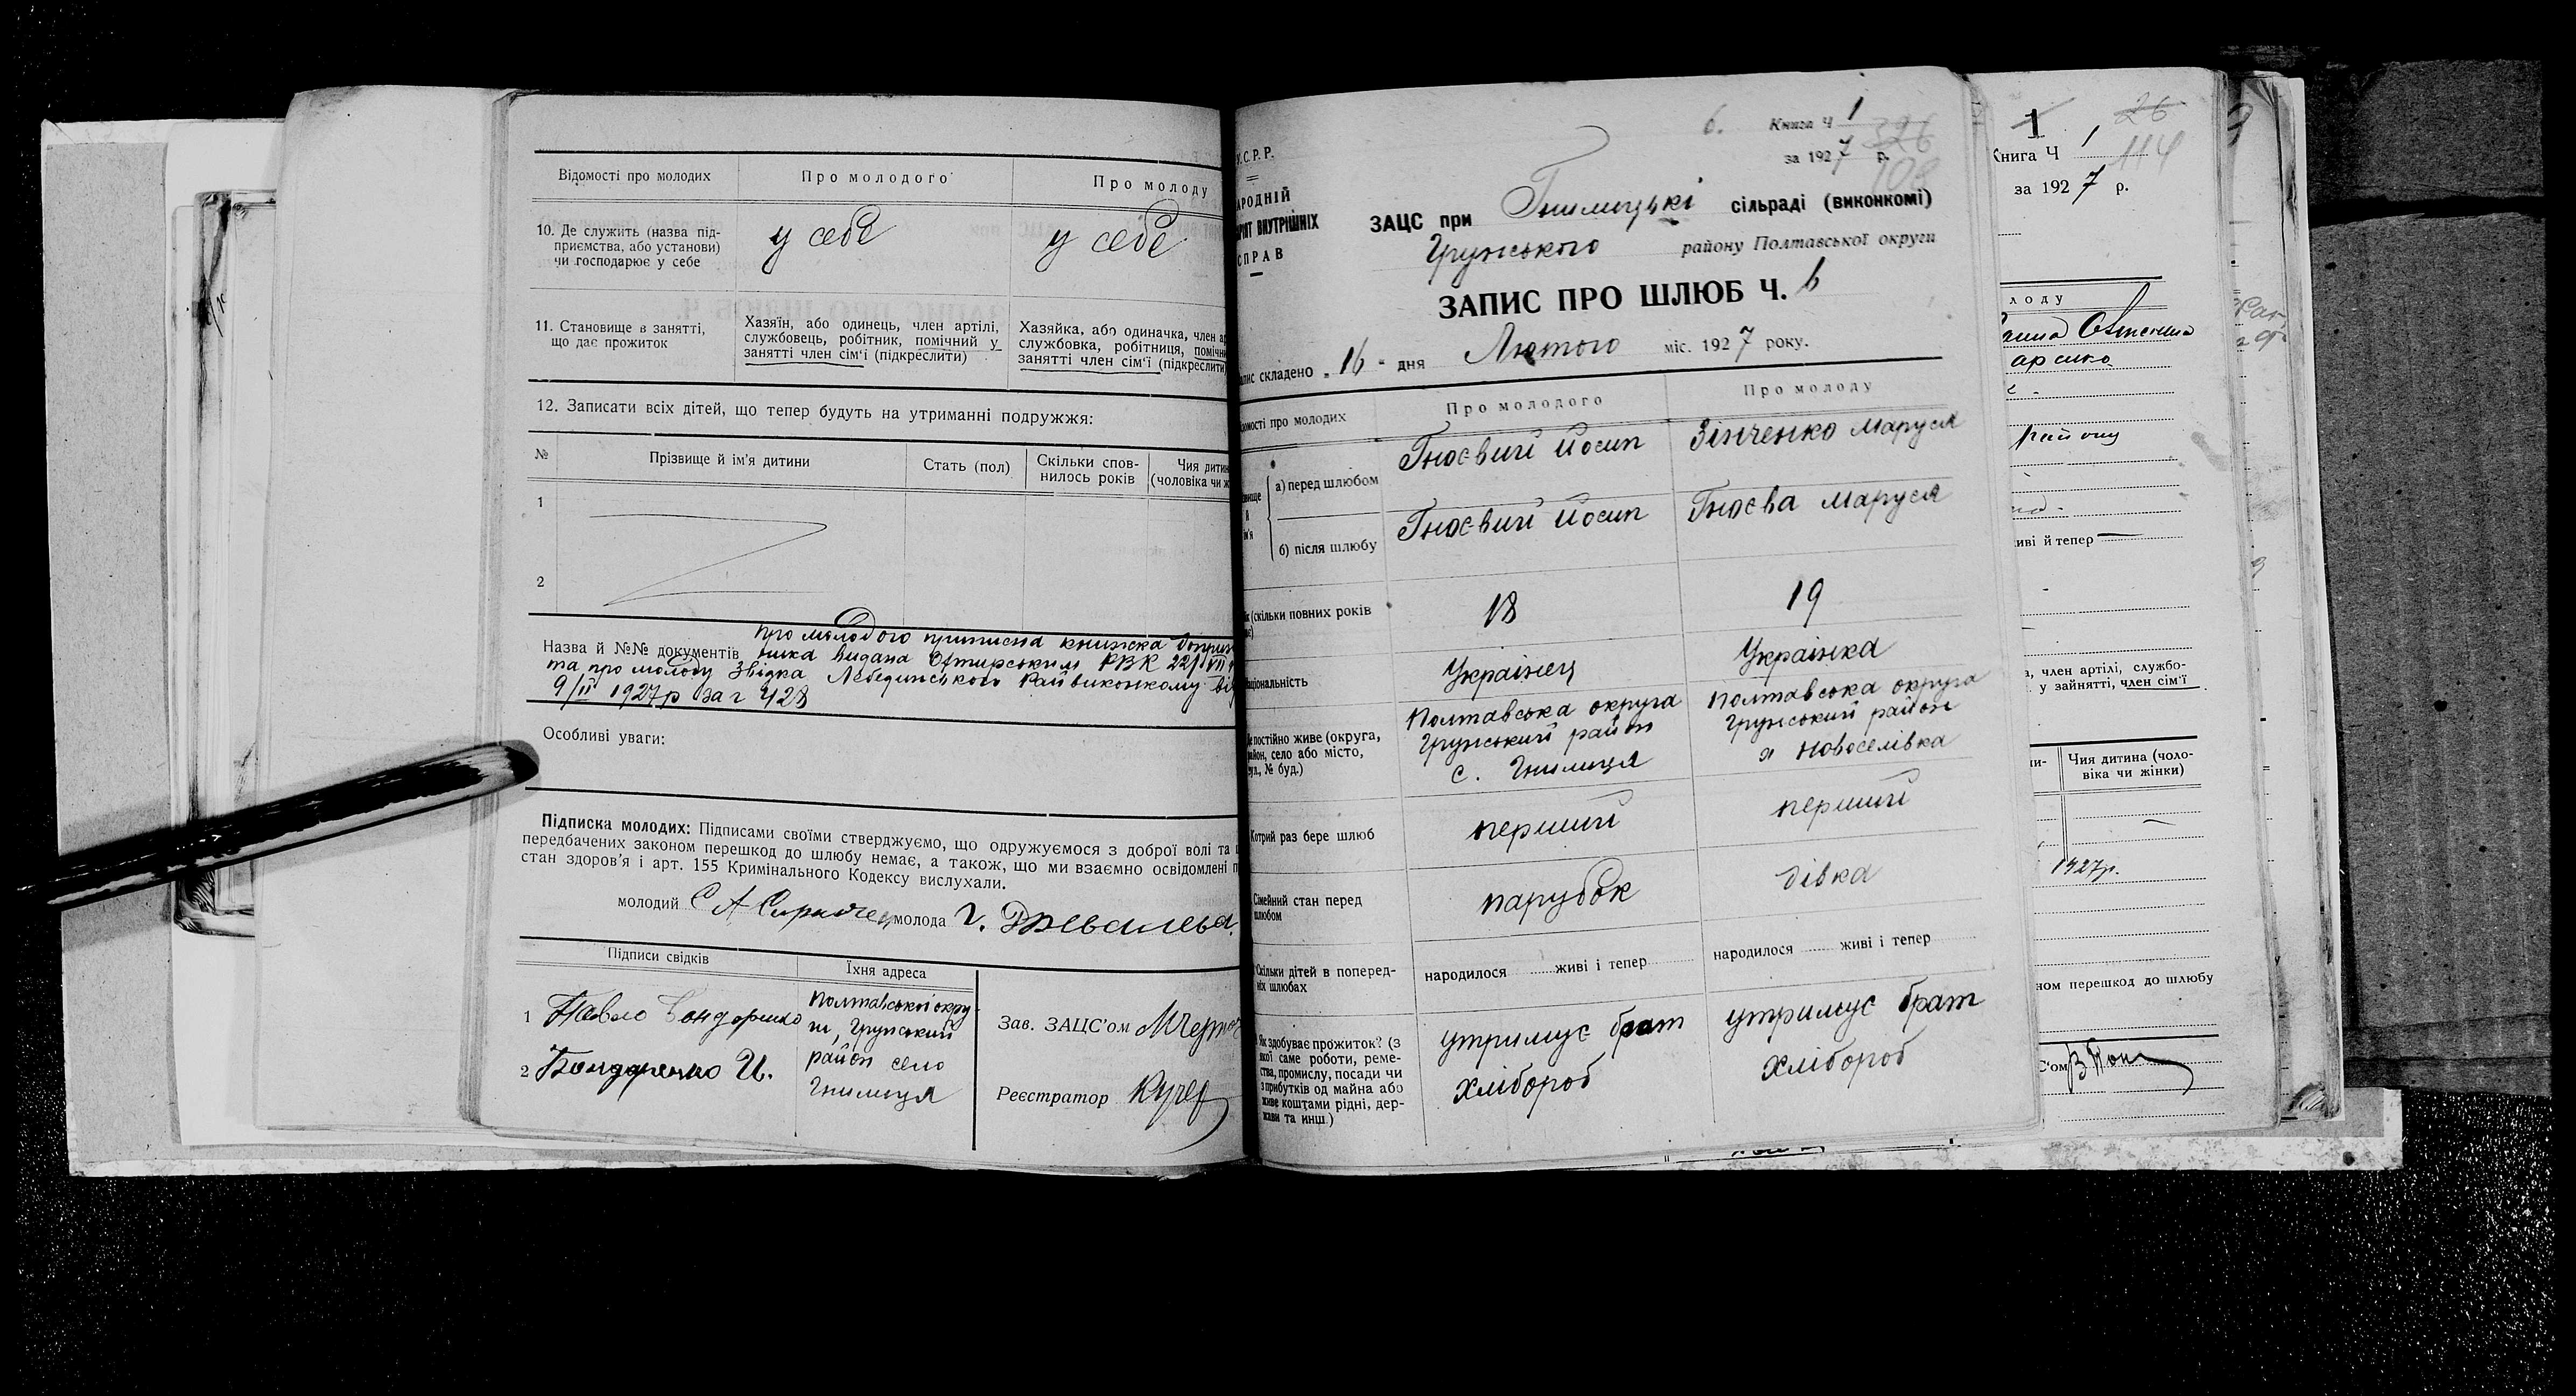 Відомості про молодих
Про молодого
Про молоду
10. Де служить (назва під-
приємства, або установи)
чи господарює у себе
у себе
у себе
11. Становище в занятті,
що дає прожиток
Хазяїн, або одинець, член артілі,
службовець, робітник, помічний у
занятті член сім'ї (підкреслити)
Хазяйка, або одиначка, член
службовка, робітниця,
занятті член сім'ї (підкреслити
12. Записати всіх дітей, що тепер будуть на утриманні подружжя:
№
Прізвище й ім'я дитини
Стать (пол)
Скільки спов-
нилось років
Чия
(чоловіка чи
1
2
Назва й №№ документів
про молодого приписна книжка
видана Охтирським РВК 22/VII
та про молоду Звідка Лебединського Райвиконкому від
9/II 1927 р за ч 428
Особливі уваги:
Підписка молодих: Підписами своїми стверджуємо, що одружуємося з доброї волі та
передбачених законом перешкод до шлюбу немає, а також, що ми взаємно освідомлені
стан здоров'я і арт. 155 Кримінального Кодексу вислухали.
молодий
молода
Підписи свідків
Їхня адреса
1 Павло Бондаренко
2 Бондаренко И.
Полтавської окру-
ги, Грунський
район село
Гнилиця
Зав. ЗАЦС'ом
Реєстратор
6.
Книга Ч 1
за 1927 р.
326
109
У.С.Р.Р.
ВНУТРІШНІХ
СПРАВ
ЗАЦС при Гнилицькі сільраді (виконкомі)
Грунського району Полтавської округи
ЗАПИС ПРО ШЛЮБ Ч. 6
складено „16" дня Лютого міс. 1927 року.
про молодих
Про молодого
Про молоду
а) перед шлюбом
Гноєвий Йосип
Зінченко Маруся
б) після шлюбу
Гноєвий Йосип
Гноєва Маруся
(скільки повних років
18
19
Українец
Українка
постійно живе (округа,
село або місто,
№ буд.)
Полтавська округа
Грунський район
с. Гнилиця
Полтавська округа
Грунський район
х Новоселівка
Котрий раз бере шлюб
перший
перший
Сімейний стан перед
шлюбом
парубок
дівка
Скільки дітей в поперед-
ніх шлюбах
народилося живі і тепер
народилося живі і тепер
Як здобуває прожиток? (з
якої саме роботи, реме-
ства, промислу, посади чи
з прибутків од майна або
живе коштами рідні, дер-
жави та инш.)
утримує брат
хлібороб
утримує брат
хлібороб
1
26
114
Книга Ч 1
за 1927 р.
району
й тепер
член артілі, службо-
у зайнятті, член сім'ї
Чия дитина (чоло-
віка чи жінки)
1927р.
перешкод до шлюбу